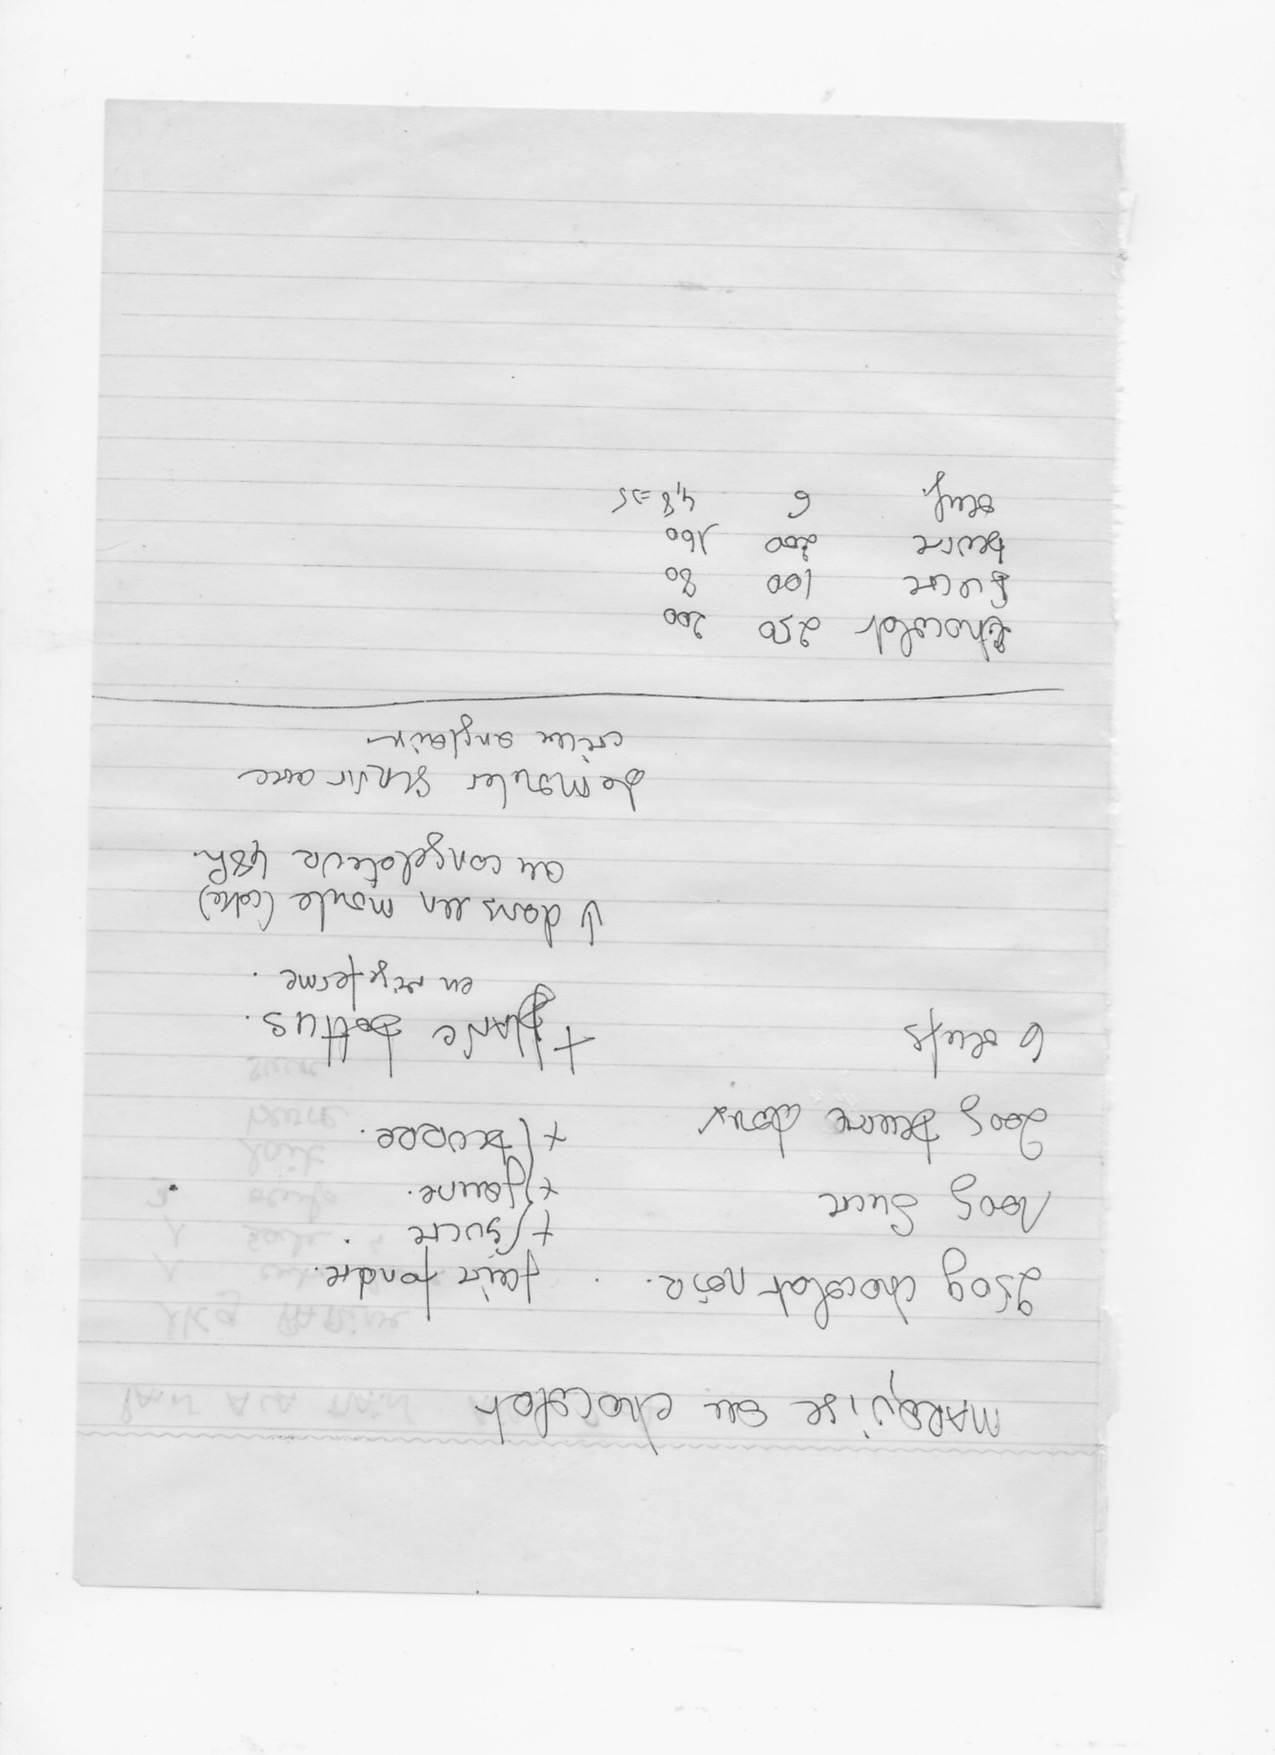 MARQUISE au chocolat
250g chocolat noir. . faire fondre.
100g Sucre + sucre .
+ jaune.
200g beurre doux + beurre.
6 oeufs + BLANC battus.
en neige ferme .
↓ dans un moule (cake)
au congelateur 48h.
demouler servir avec
crème anglaise
chocolat 250 200
Sucre 100 80
beurre 200 160
oeuf. 6 4,8 => 5